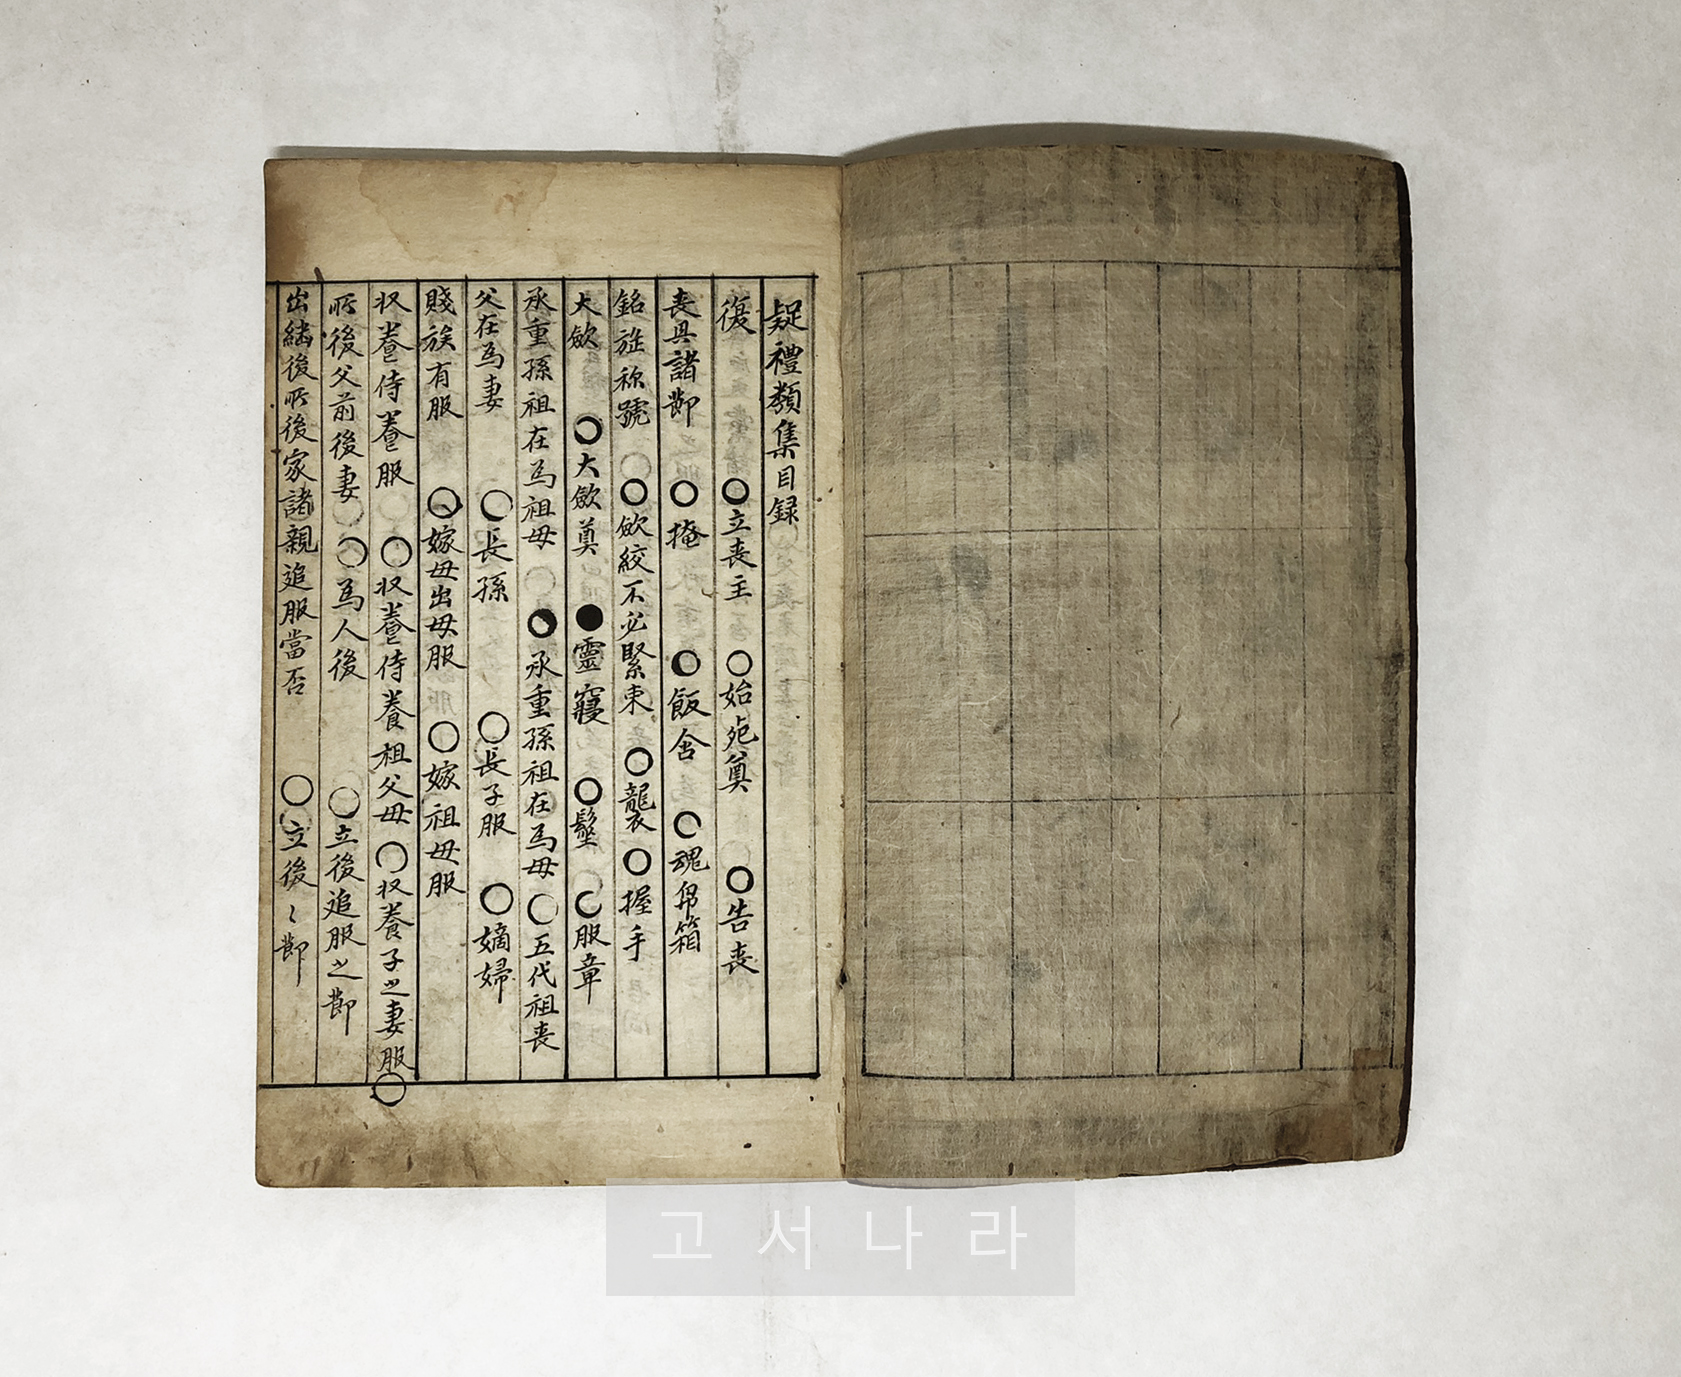 疑禮類集目録
復 ○立喪主 ○始死奠 ○告喪
喪具諸節 ○掩 ○飯含 ○魂帛箱
銘旌称號 ○斂絞不必緊束 ○襲 ○握手
大斂 ○大斂奠 ●靈寢 ○髽 ○服章
承重孫祖在為祖母 ○承重孫祖在為母 ○五代祖喪
父在為妻 ○長孫 ○長子服 ○嫡婦
賤族有服 ○嫁母出母服 ○嫁祖母服
収養侍養服 ○収養侍養祖父母 ○収養子之妻服 ○
所後父前後妻 ○為人後 ○立後追服之節
出継後所後家諸親追服當否 ○立後〻節
고서나라